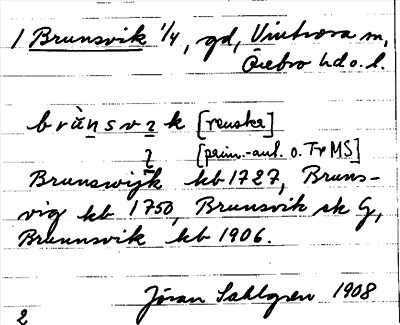 1 Brunsvik 1/4, gd, Vintrosa sn,
Örebro hd o. l.
brùnsvɪk [renskr]
ʔ [prim.-aut. o. Tr MS]
Brunswijk kb 1727, Bruns-
vig kb 1750, Brunsvik sk G,
Brunnsvik kb 1906.
Jöran Sahlgren 1908
2